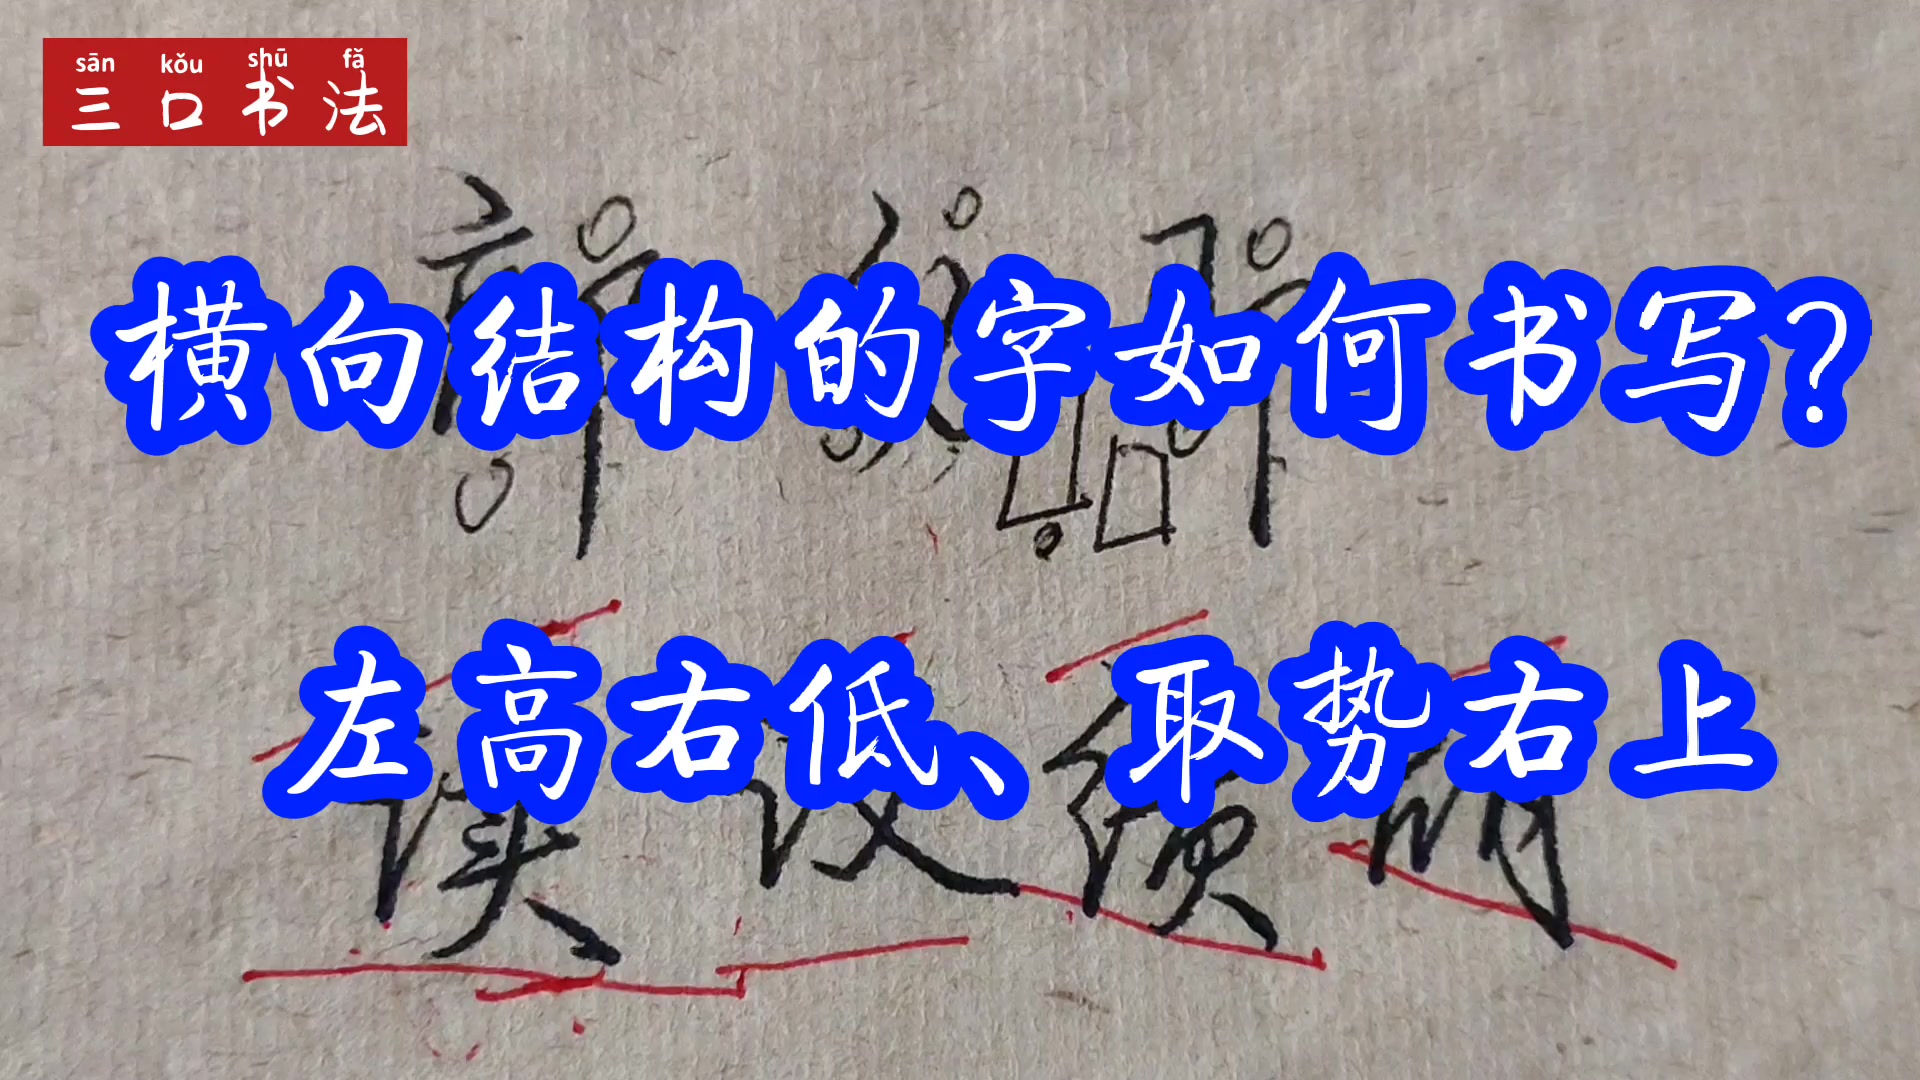 sān kǒu shū fǎ
三口书法
横向结构的字如何书写？
左高右低、取势右上
读 议 绩